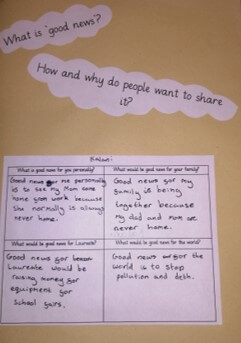 What is 'good news'?
How and why do people want to share
it?
Kalani
What is good news for you personally?
Good news for me personally
is to see my Mom come
home from work because
she normally is always
never home.
What would be good news for your family?
Good news for my
family is being
together because
my dad and mom are
never home.
What would be good news for Laureate?
Good news for
Laureate would be
raising money for
equipment for
School fairs.
What would be good news for the world?
Good news for
the world is to stop
pollution and deth.